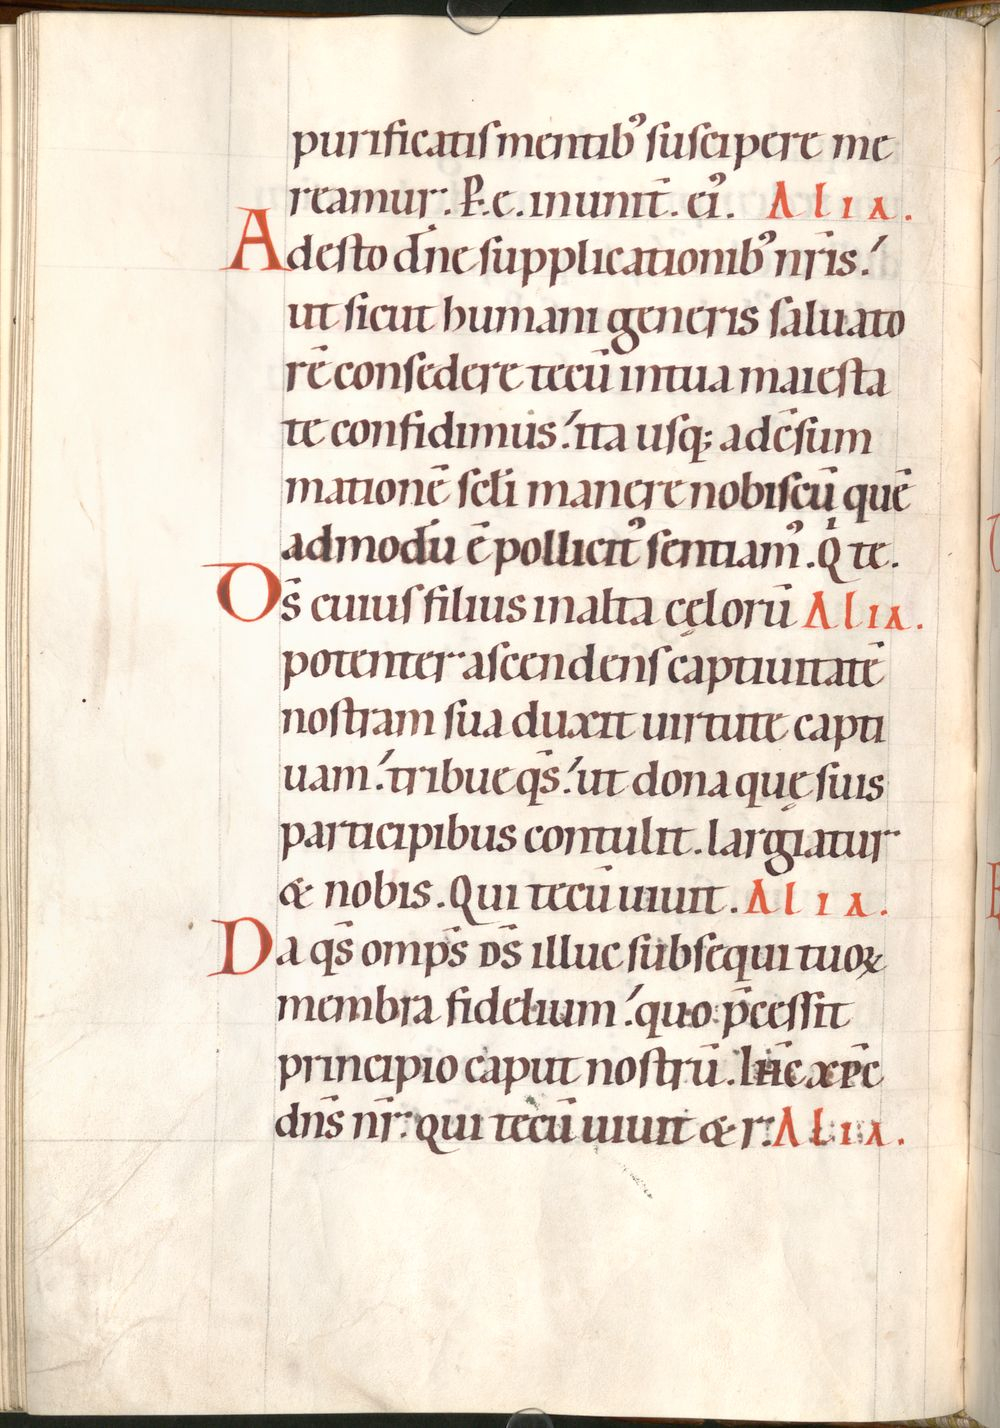 purificatis mentib᾽ suscipere me
reamur. P. e. in unit̄. ei᾽. Alia.
Adesto dn̄e supplicationib᾽ nr̄is.
ut sicut humani generis saluato
rē consedere tecū in tua maiesta
te confidimus. ita usq; ad cōsum
mationē scłi manere nobiscū quē
admodū ē pollicit᾽ sentiam᾽. Q te.
Ds̄ cuius filius in alta cęlorū Alia.
potenter ascendens captiuitatē
nostram sua duxit uirtute capti
uam. tribue qs̄. ut dona quę suis
participibus contulit. largiatur
& nobis. Qui tecū uiuit. Alia.
Da qs̄ omps̄ ds̄ illuc subsequi tuoꝝ
membra fidelium. quo p̄cessit
principio caput nostrū. Ihc̄ xpc̄
dn̄s nr̄. qui tecū uiuit & r. Alia.